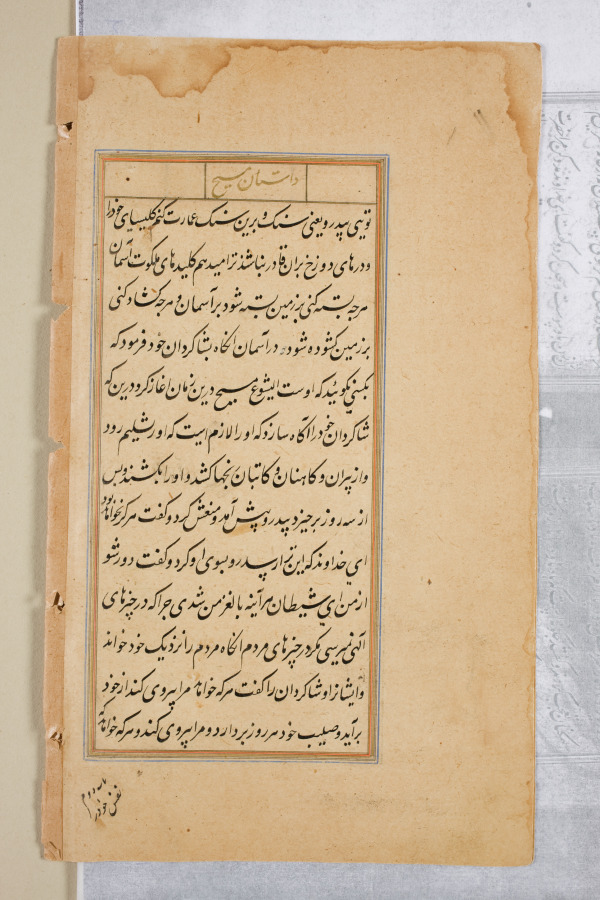 داستان مسیح
توییی پیدرو یعنی سنک و برین سنک عمارت کنم کلیسیای خودرا
و درهای دوزخ بران قادر نباشند ترا میدهم کلیدهای ملکوت آسمان
هرجه بسته کنی بر زمین بسته شود بر آسمان و هرجه کشاد کنی
بر زمین کشوده شود در آسمان انکاه بشاکردان خود فرمود که
بکسی نکوئید که اوست ایشوع مسیح درین زمان اغاز کرد درین که
شاکردان خودرا آکاه سازد که اورا لازم است که اورشلیم رود
و از پیران و کاهنان و کاتبان رنجها کشد و اورا بکشند و پس
از سه روز برخیزد پیدرو پیش آمد و منعش کرد و کفت هرکز نخواهد بود
ای خداوند که این ترا رسد رو بسوی او کرد و کفت دور شو
از من ای شیطان هرآینه بالغز من شدی جراکه در جیزهای
آلهی نمیرسی مکر در جیزهای مردم انکاه مردم را نزدیک خود خواند
و ایشانرا و شاکردان را کفت هرکه خواهد مرا پیروی کند از خود
برآید و صلیب خود هر روز بردارد و مرا پیروی کند و هرکه خواهد که
نفس خودرا